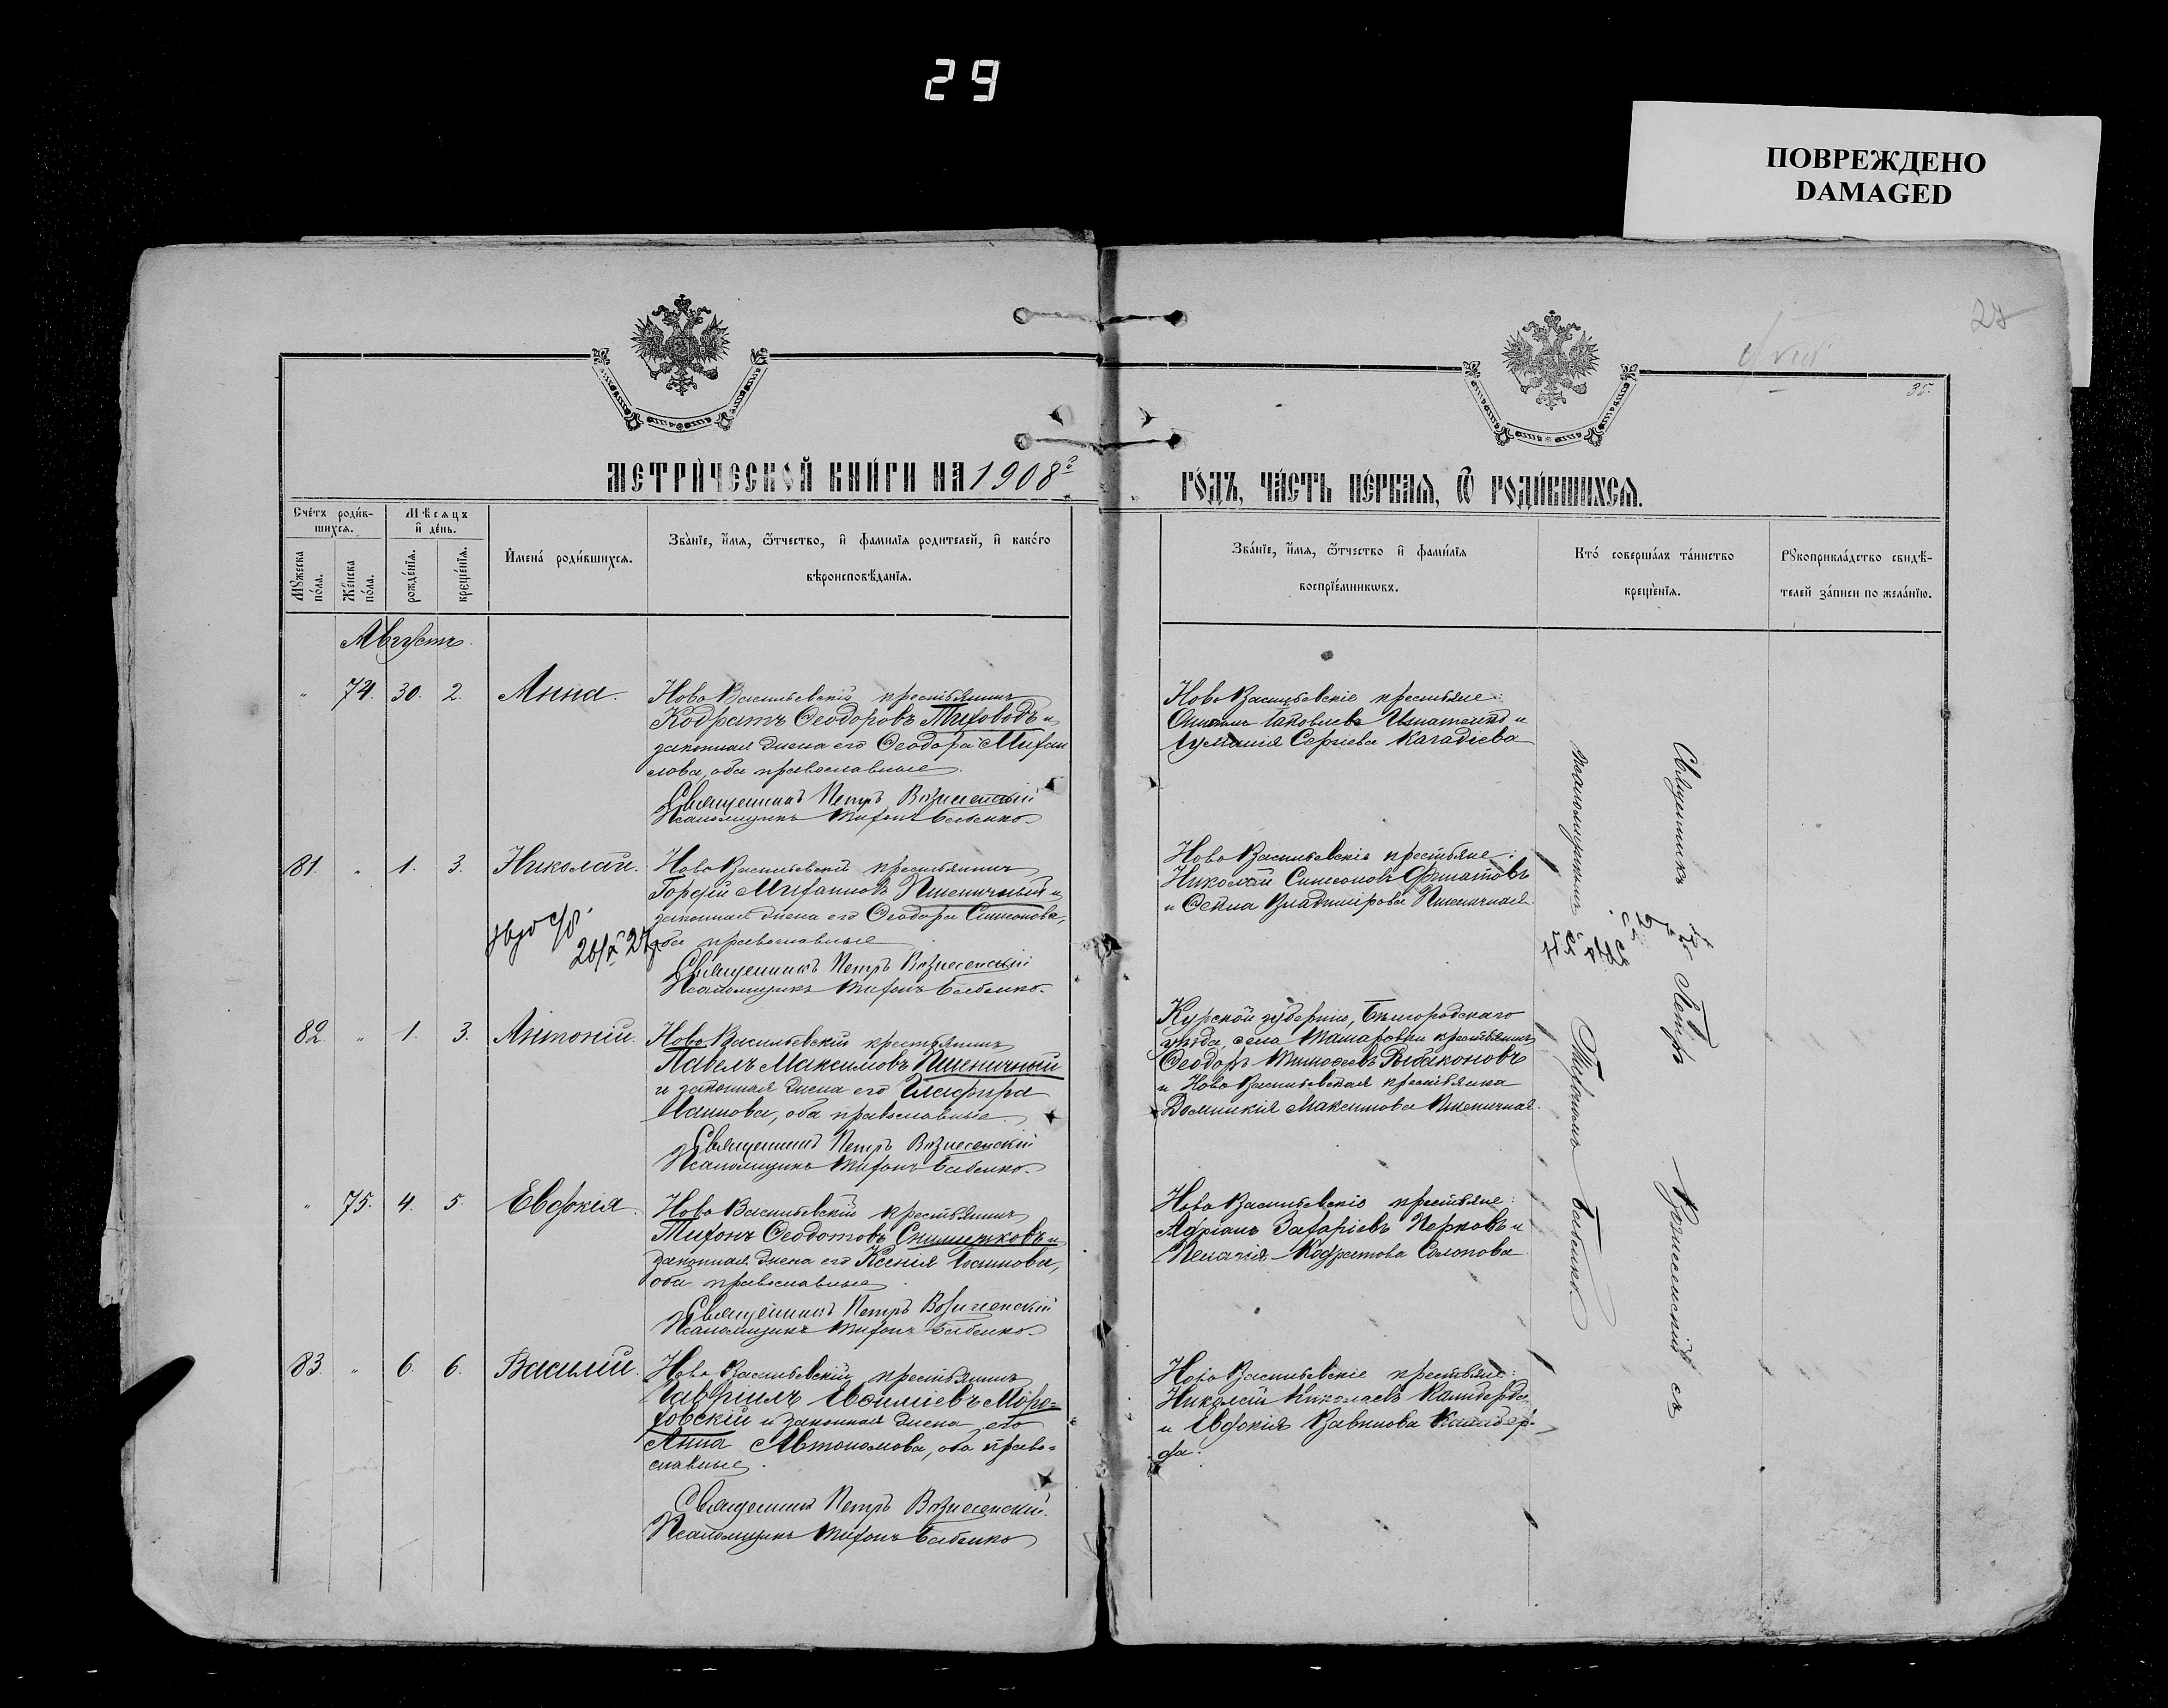 29
ПОВРЕЖДЕНО
DAMAGED
28
35.
МЕТРИ́ЧЕСКОЙ КНИ́ГИ НА 1908й
ГО́ДЪ, ЧА́СТЬ ПЕ́РВАѦ, Ѿ РОДИ́ВШИХСѦ.
Сче́тъ роди́в-
шихсѧ.
Мѣ́сѧцъ
и҆ де́нь.
Мꙋ́жеска
по́ла.
Же́нска
по́ла.
рожде́нїѧ.
креще́нїѧ.
И҆мена̀ роди́вшихсѧ.
Зва́нїе, и҆́мѧ, ѻ҆́тчество, и҆ фами́лїѧ роди́телей, и҆ како́гѡ
вѣроисповѣ́данїѧ.
Зва́нїе, и҆́мѧ, ѻ҆́тчество и҆ фами́лїѧ
воспрїе́мникѡвъ.
Кто̀ соверша́лъ та́инство
креще́нїѧ.
Рꙋкоприкла́дство свидѣ́-
телей за́писи по жела́нїю.
Августъ.
" 74. 30. 2. Анна.
НовоВасильевскій крестьянинъ
Кодратъ Ѳеодоровъ Тиховодъ и
законная жена его Ѳеодора Михаи
лова, оба православные.
Священникъ Петръ Вознесенскій
Псаломщикъ Тихонъ Бабенко
НовоВасильевскіе крестьяне:
Игнатенко и
Сергіева
81. " 1. 3. Николай.
НовоВасильевскій крестьянинъ
Гордій Митфановъ Пшеничный и
законная жена его Ѳеодора Симонова,
оба православные
Священникъ Петръ Вознесенскій
Псаломщикъ Тихонъ Бабенко
НовоВасильевскіе крестьяне:
Николай Симеоновъ Филатовъ
и Ѳекла Владимірова Пшеничная.
82. " 1. 3. Антоній.
НовоВасильевскій крестьянинъ
Павелъ Максимовъ Пшеничный
и законная жена его Глафира
Иванова, оба православные.
Священникъ Петръ Вознесенскій
Псаломщикъ Тихонъ Бабенко
Курской губерніи, Бѣлгородскаго
уѣзда, села крестьянинъ
Ѳеодоръ Тимоѳеевъ
и НовоВасильевская крестьянка
Домникія Максимова Пшеничная.
" 75. 4. 5. Евдокія.
НовоВасильевскій крестьянинъ
Тихонъ Ѳеодотовъ и
законная жена его Ксенія Іоаннова,
оба православные
Священникъ Петръ Вознесенскій
Псаломщикъ Тихонъ Бабенко
НовоВасильевскіе крестьяне:
Адріанъ Захаріевъ Перковъ и
Пелагія Кодратова Солопова
83. " 6. 6. Василій.
НовоВасильевскій крестьянинъ
Гавріилъ Моро=
ховскій и законная жена его
Анна Автономова, оба право=
славные.
Священникъ Петръ Вознесенскій.
Псаломщикъ Тихонъ Бабенко
НовоВасильевскіе крестьяне:
Николай Николаевъ
и Евдокія
Священникъ Петръ Вознесенскій съ
псаломщикомъ Тихономъ Бабенко.